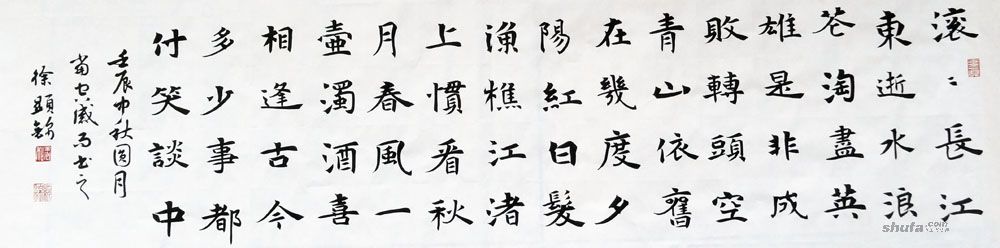 滚〻長江
東逝水浪
花淘盡英
雄是非成
敗轉頭空
青山依舊
在幾度夕
陽紅白髮
漁樵江渚
上慣看秋
月春風一
壺濁酒喜
相逢古今
多少事都
付笑談中
壬辰中秋圆月
当空感而书之
徐顕
shufa.com